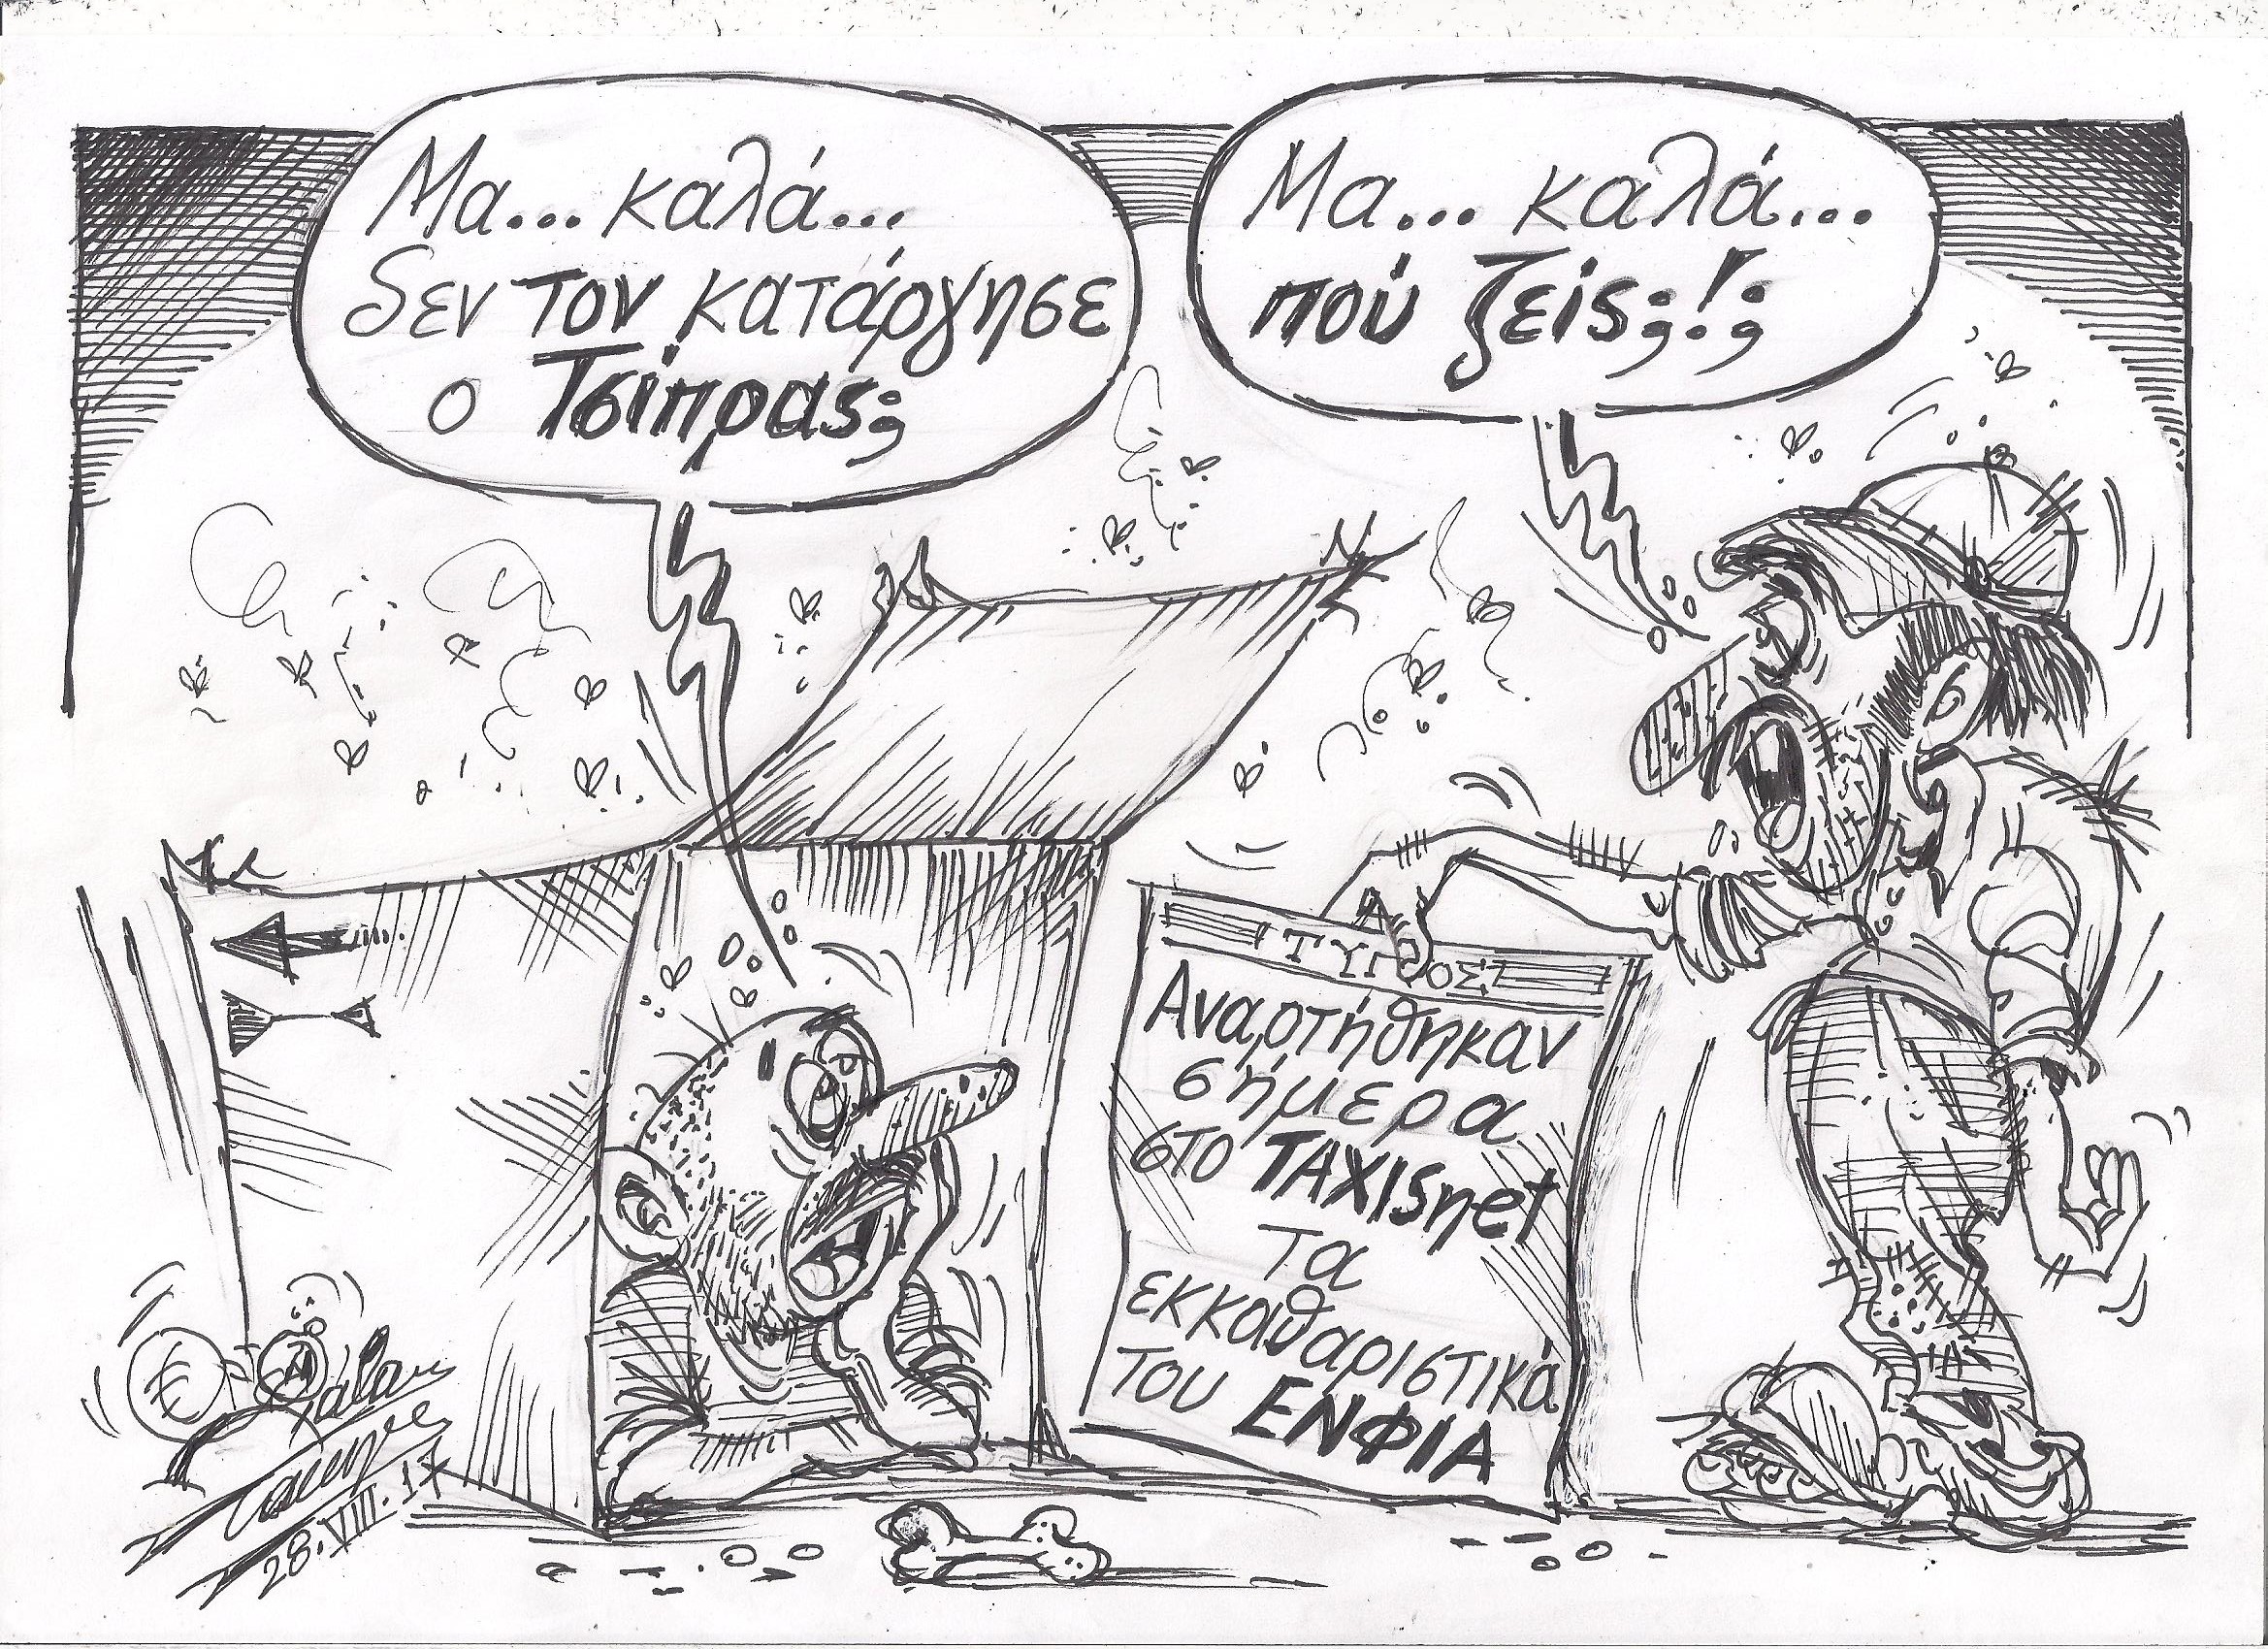 Μα... καλά...
δεν τον κατάργησε
ο Τσίπρας;
Μα... καλά...
πού ζείς;!;
ΤΥΠΟΣ
Αναρτήθηκαν
σήμερα
στο TAXISnet
τα
εκκαθαριστικά
του ΕΝΦΙΑ
28.VIII.17